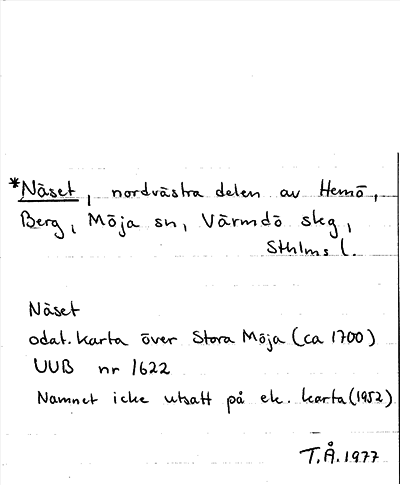 *Näset, nordvästra delen av Hemö,
Berg, Möja sn, Värmdö skg,
Sthlms l.
Näset
odat. karta över Stora Möja (ca 1700)
UUB nr 1622
Namnet icke utsatt på ek. karta (1952)
T.Å. 1977